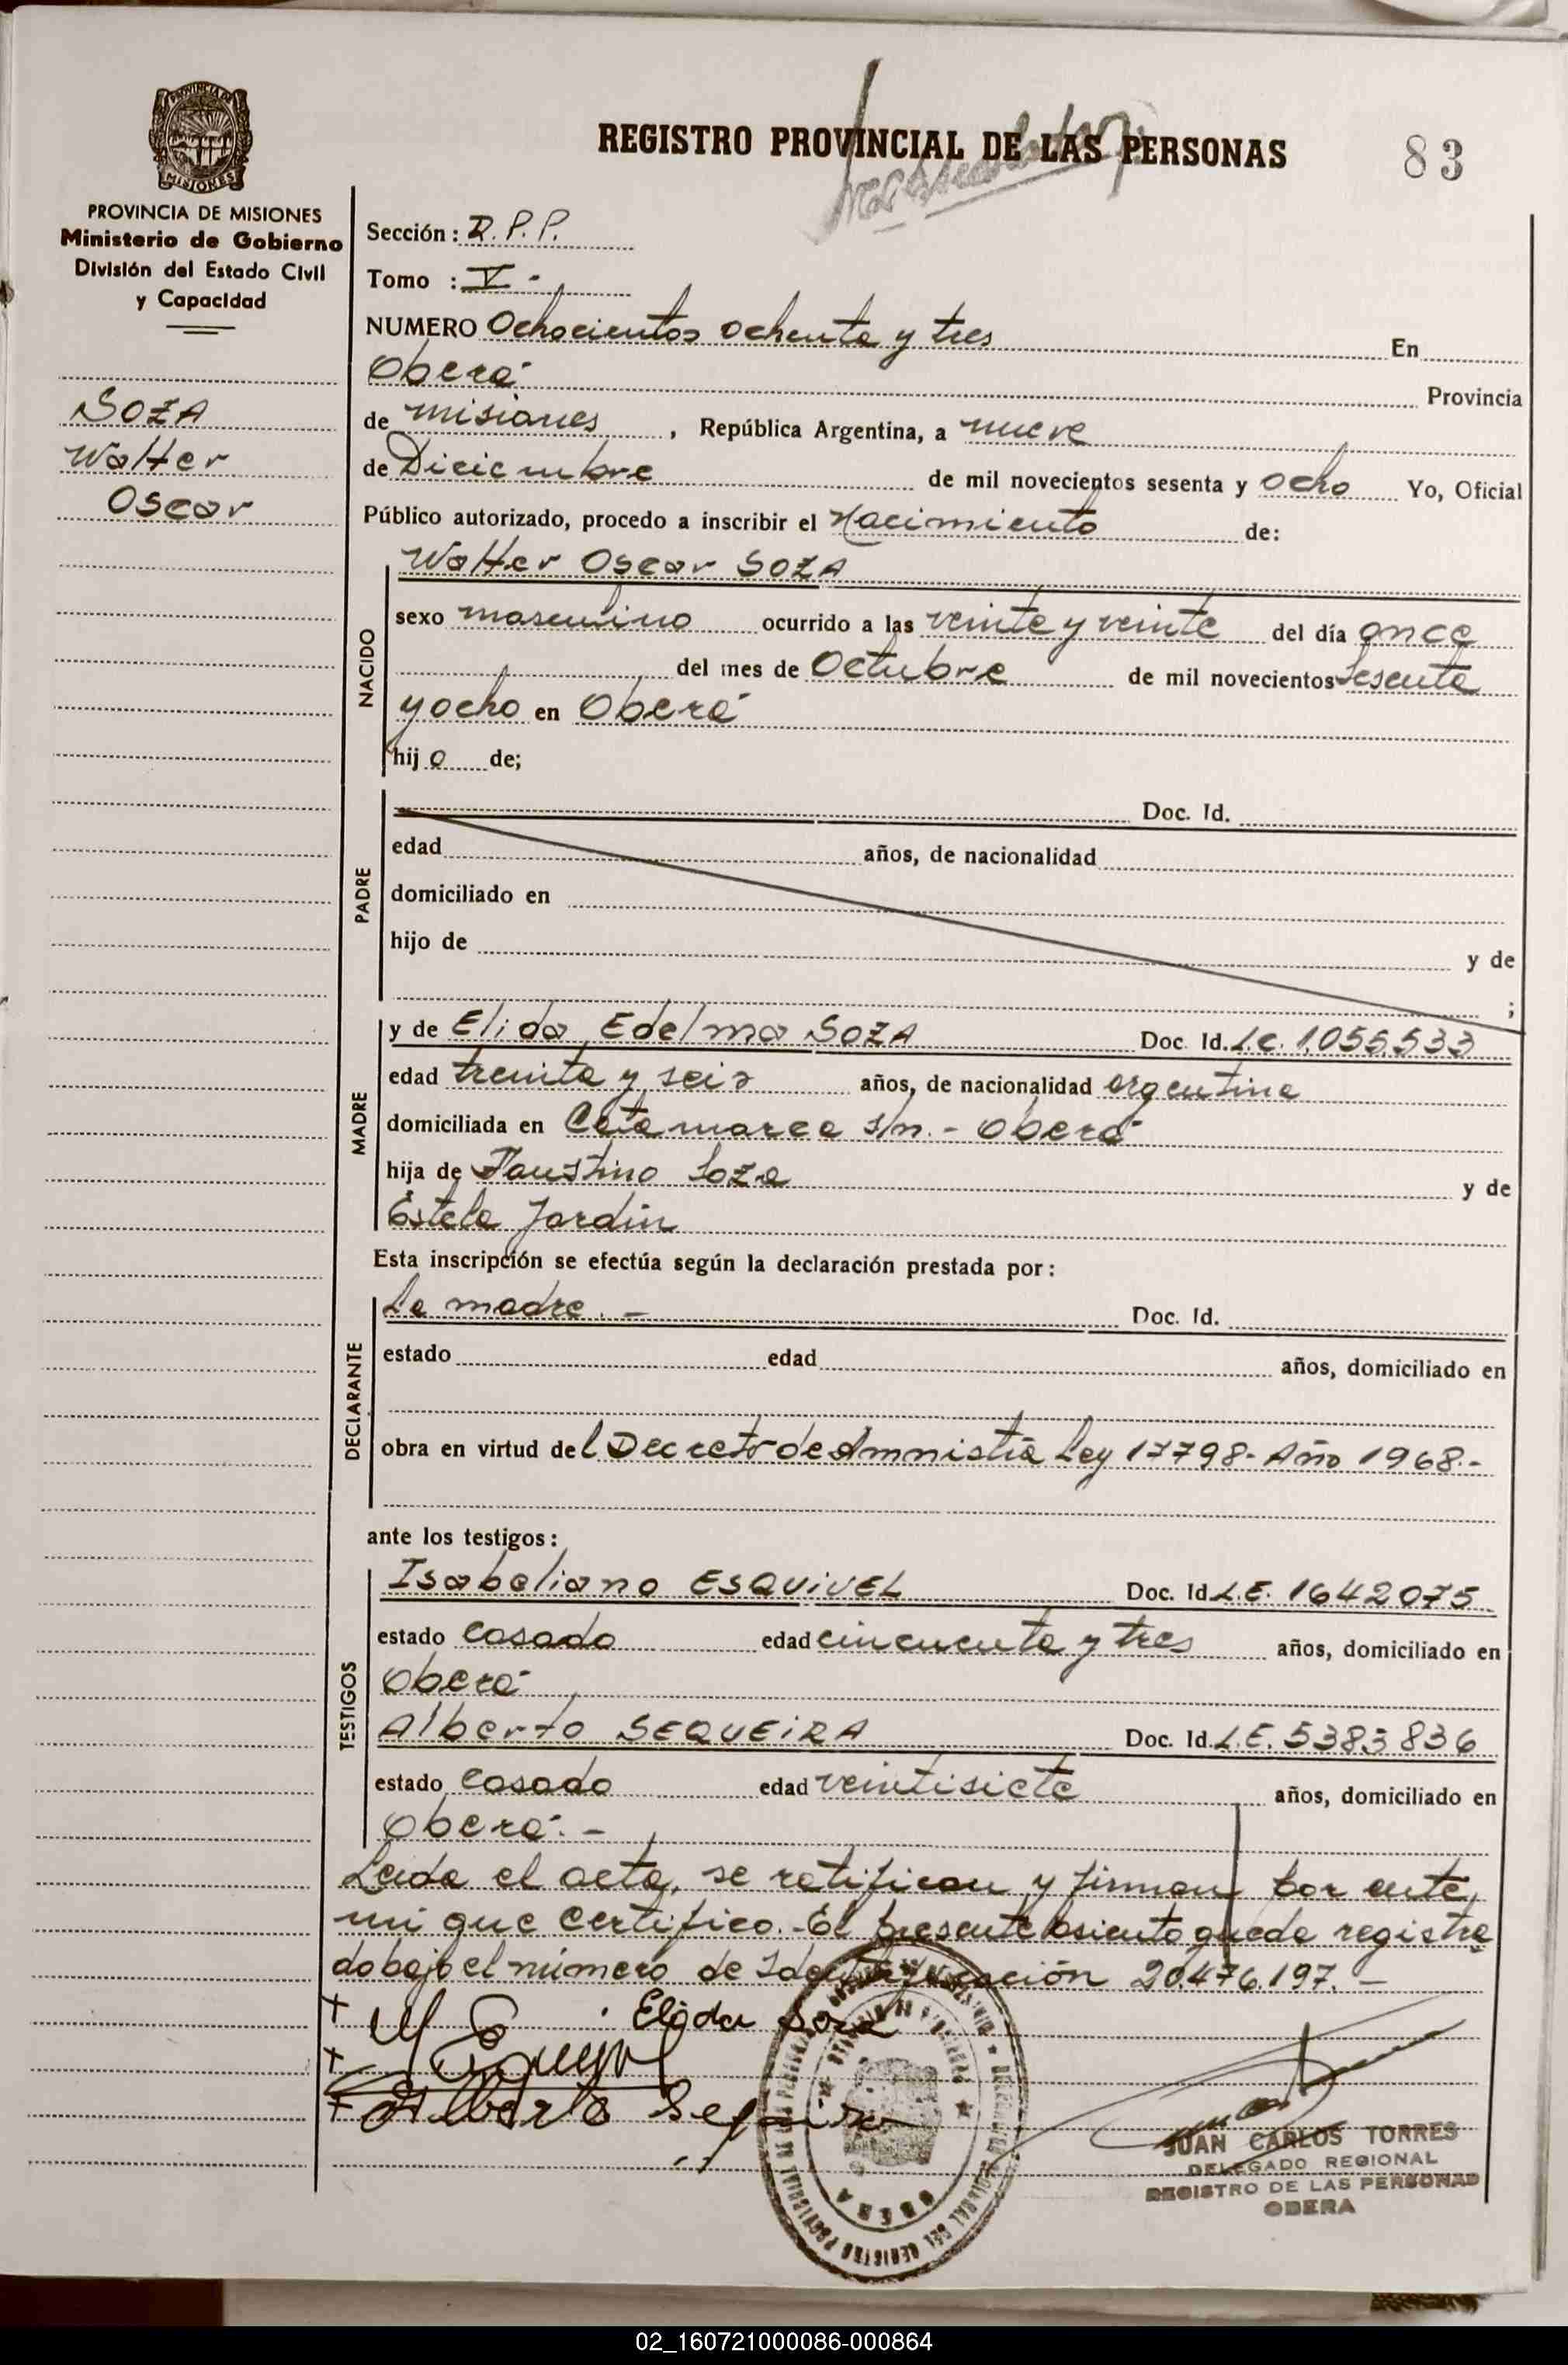 REGISTRO PROVINCIAL DE LAS PERSONAS
83
PROVINCIA DE MISIONES
Ministerio de Gobierno
División del Estado Civil
y Capacidad
SOZA
Walter
Oscar
Sección: R.P.P.
Tomo : V -
NUMERO Ochocientos ochenta y tres En
Oberá Provincia
de misiones, República Argentina, a nueve
de Diciembre de mil novecientos sesenta y ocho Yo, Oficial
Público autorizado, procedo a inscribir el Nacimiento de:
NACIDO
Walter Oscar SOZA
sexo masculino ocurrido a las veinte y veinte del día once
del mes de Octubre de mil novecientos sesenta
y ocho en Oberá
hijo de;
PADRE
Doc. Id.
edad años, de nacionalidad
domiciliado en
hijo de y de
;
MADRE
y de Elida Edelma SOZA Doc. Id. L.C. 1.055.533
edad treinta y seis años, de nacionalidad argentina
domiciliada en Catamarca s/n. - Oberá
hija de Faustino Soza y de
Estela Jardin
Esta inscripción se efectúa según la declaración prestada por:
DECLARANTE
La madre. - Doc. Id.
estado edad años, domiciliado en
obra en virtud del Decreto de Amnistía Ley 17798- Año 1968.-
ante los testigos:
TESTIGOS
Isabeliano ESQUIVEL Doc. Id. L.E. 1642075
estado casado edad cincuenta y tres años, domiciliado en
Oberá
Alberto SEQUEIRA Doc. Id. L.E. 5383836
estado casado edad veintisiete años, domiciliado en
Oberá. -
Leida el acta, se ratifican y firman por ante
mi que certifico. - El presente asiento queda registra
do bajo el número de Identificación 20.476.197. -
+ Elida Soza
+
+ Alberto Sequeira
JUAN CARLOS TORRES
DELEGADO REGIONAL
REGISTRO DE LAS PERSONAS
OBERA
02_160721000086-000864